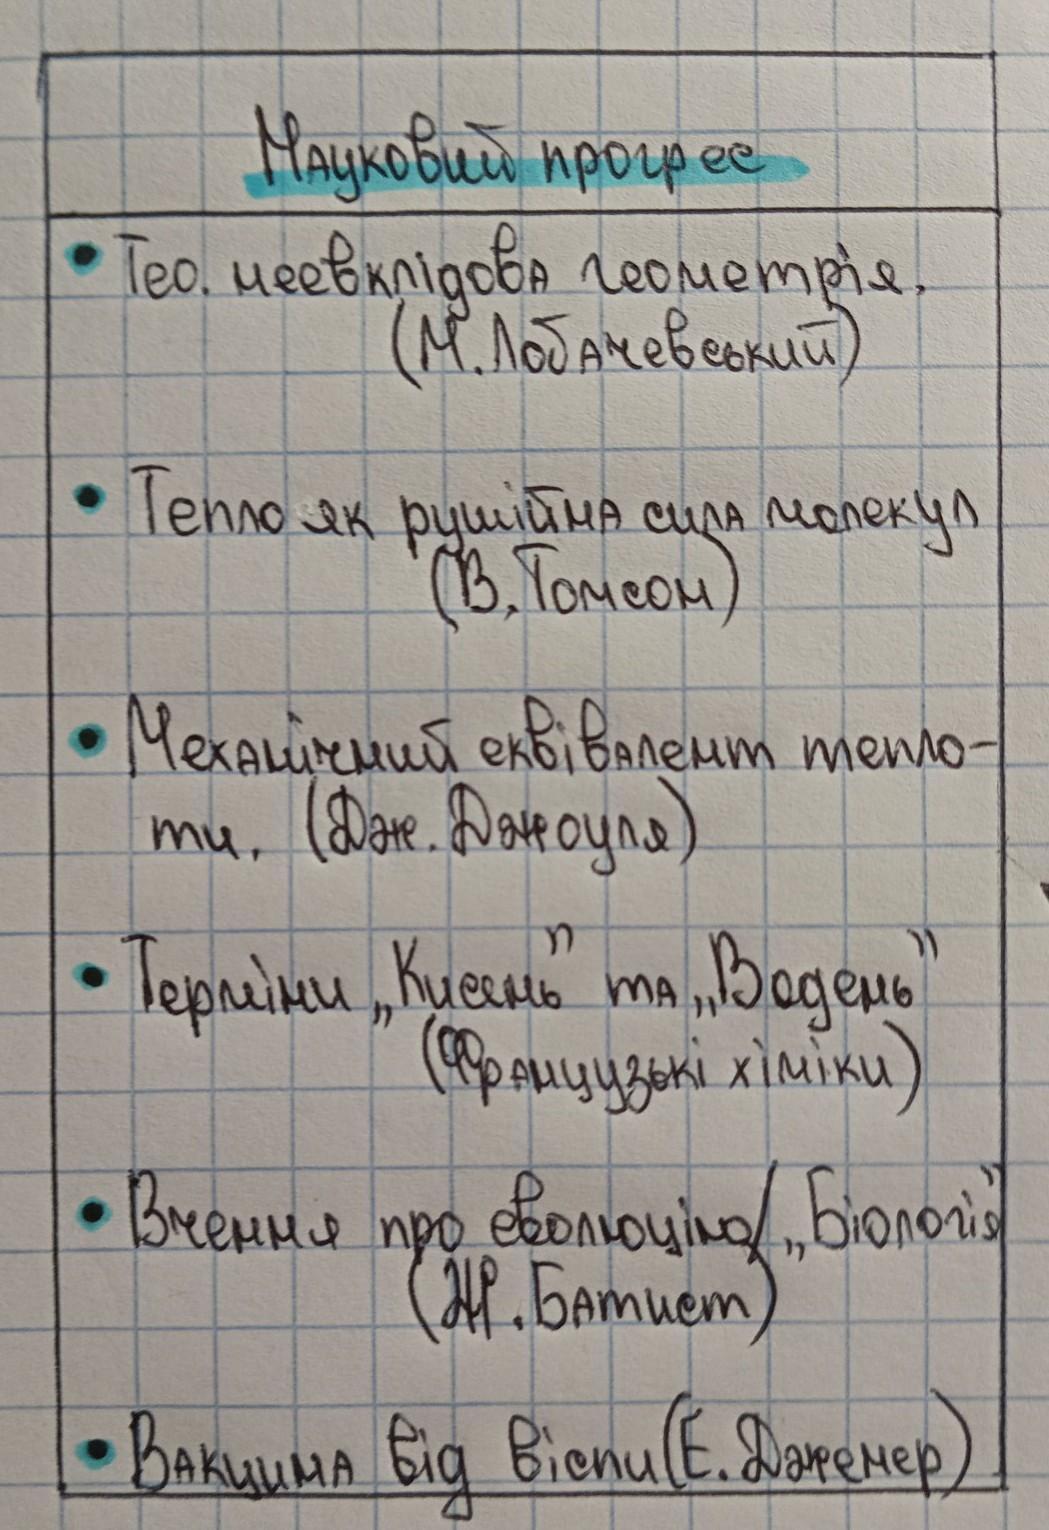 Науковий прогрес
• Тео. неевклідова геометрія.
(М. Лобачевський)
• Тепло як рушійна сила молекул
(В. Томсон)
• Механічний еквівалент тепло-
ти. (Дж. Джоуля)
• Терміни „Кисень” та „Водень”
(Французькі хіміки)
• Вчення про еволюцію/„Біологія”
(Ж. Батист)
• Вакцина від віспи (Е. Дженер)